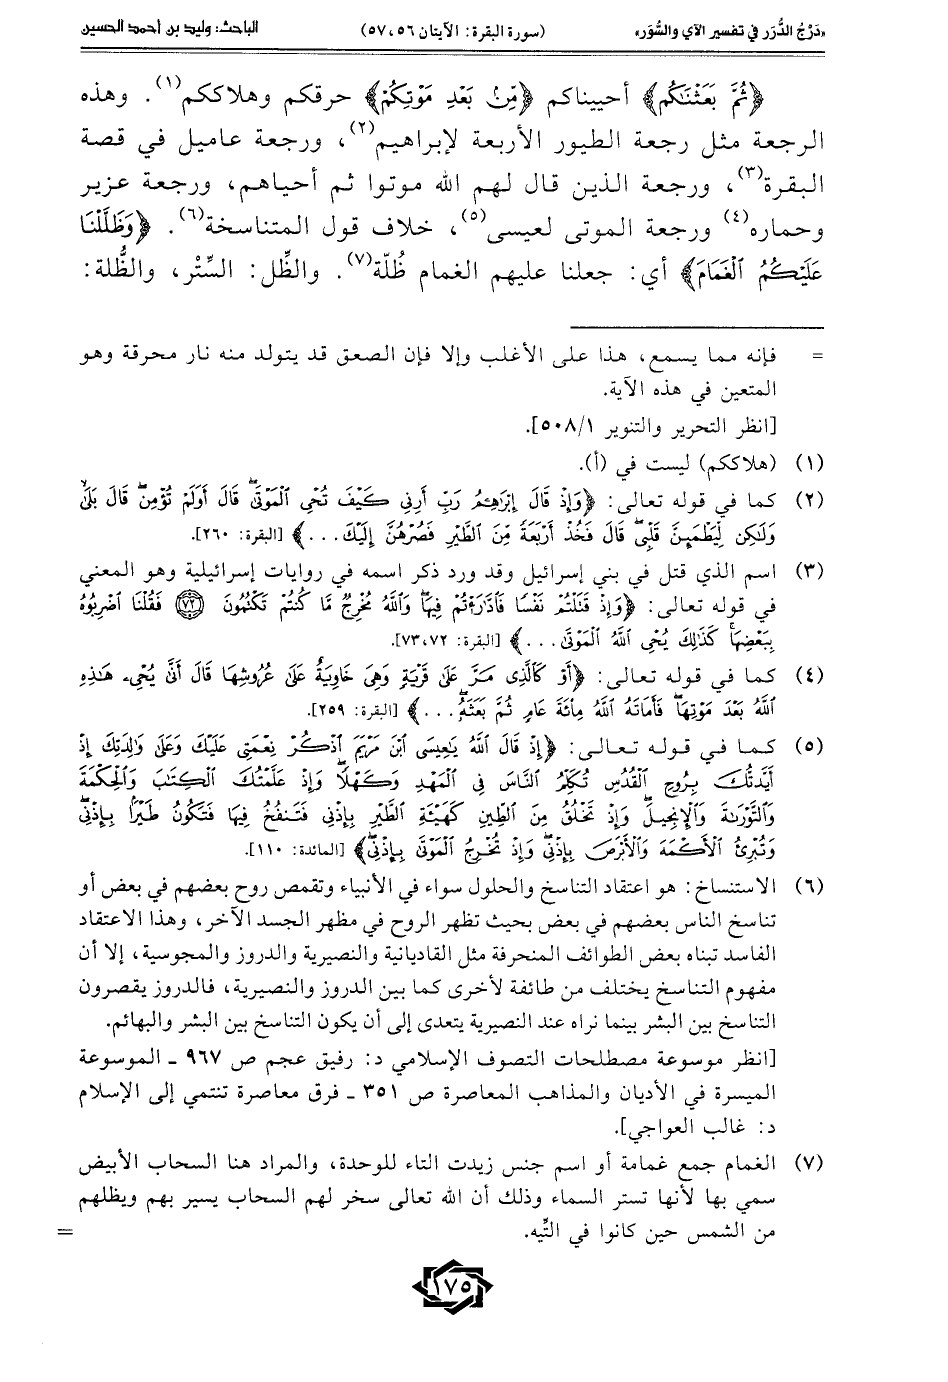 «دَرْجُ الدُّرَر في تفسير الآي والسُّوَر» (سورة البقرة: الآيتان ٥٦، ٥٧) الباحث: وليد بن أحمد الحسين
﴿ثُمَّ بَعَثْنَٰكُم﴾ أحييناكم ﴿مِّنۢ بَعْدِ مَوْتِكُمْ﴾ حرقكم وهلاككم(١). وهذه
الرجعة مثل رجعة الطيور الأربعة لإبراهيم(٢)، ورجعة عاميل في قصة
البقرة(٣)، ورجعة الذين قال لهم الله موتوا ثم أحياهم، ورجعة عزير
وحماره(٤) ورجعة الموتى لعيسى(٥)، خلاف قول المتناسخة(٦). ﴿وَظَلَّلْنَا
عَلَيْكُمُ ٱلْغَمَامَ﴾ أي: جعلنا عليهم الغمام ظُلّة(٧). والظِّل: السِّتْر، والظُّلة:
= فإنه مما يسمع، هذا على الأغلب وإلا فإن الصعق قد يتولد منه نار محرقة وهو
المتعين في هذه الآية.
[انظر التحرير والتنوير ٥٠٨/١].
(١) (هلاككم) ليست في (أ).
(٢) كما في قوله تعالى: ﴿وَإِذْ قَالَ إِبْرَٰهِـۧمُ رَبِّ أَرِنِى كَيْفَ تُحْىِ ٱلْمَوْتَىٰ ۖ قَالَ أَوَلَمْ تُؤْمِن ۖ قَالَ بَلَىٰ
وَلَٰكِن لِّيَطْمَئِنَّ قَلْبِى ۖ قَالَ فَخُذْ أَرْبَعَةً مِّنَ ٱلطَّيْرِ فَصُرْهُنَّ إِلَيْكَ...﴾ [البقرة: ٢٦٠].
(٣) اسم الذي قتل في بني إسرائيل وقد ورد ذكر اسمه في روايات إسرائيلية وهو المعني
في قوله تعالى: ﴿وَإِذْ قَتَلْتُمْ نَفْسًا فَٱدَّٰرَْٰٔتُمْ فِيهَا ۖ وَٱللَّهُ مُخْرِجٌ مَّا كُنتُمْ تَكْتُمُونَ ﴿٧٢﴾ فَقُلْنَا ٱضْرِبُوهُ
بِبَعْضِهَا ۚ كَذَٰلِكَ يُحْىِ ٱللَّهُ ٱلْمَوْتَىٰ...﴾ [البقرة: ٧٢، ٧٣].
(٤) كما في قوله تعالى: ﴿أَوْ كَٱلَّذِى مَرَّ عَلَىٰ قَرْيَةٍ وَهِىَ خَاوِيَةٌ عَلَىٰ عُرُوشِهَا قَالَ أَنَّىٰ يُحْىِۦ هَٰذِهِ
ٱللَّهُ بَعْدَ مَوْتِهَا ۖ فَأَمَاتَهُ ٱللَّهُ مِا۟ئَةَ عَامٍ ثُمَّ بَعَثَهُۥ ۖ...﴾ [البقرة: ٢٥٩].
(٥) كما في قوله تعالى: ﴿إِذْ قَالَ ٱللَّهُ يَٰعِيسَى ٱبْنَ مَرْيَمَ ٱذْكُرْ نِعْمَتِى عَلَيْكَ وَعَلَىٰ وَٰلِدَتِكَ إِذْ
أَيَّدتُّكَ بِرُوحِ ٱلْقُدُسِ تُكَلِّمُ ٱلنَّاسَ فِى ٱلْمَهْدِ وَكَهْلًا ۖ وَإِذْ عَلَّمْتُكَ ٱلْكِتَٰبَ وَٱلْحِكْمَةَ
وَٱلتَّوْرَىٰةَ وَٱلْإِنجِيلَ ۖ وَإِذْ تَخْلُقُ مِنَ ٱلطِّينِ كَهَيْـَٔةِ ٱلطَّيْرِ بِإِذْنِى فَتَنفُخُ فِيهَا فَتَكُونُ طَيْرًۢا بِإِذْنِى ۖ
وَتُبْرِئُ ٱلْأَكْمَهَ وَٱلْأَبْرَصَ بِإِذْنِى ۖ وَإِذْ تُخْرِجُ ٱلْمَوْتَىٰ بِإِذْنِى ۖ﴾ [المائدة: ١١٠].
(٦) الاستنساخ: هو اعتقاد التناسخ والحلول سواء في الأنبياء وتقمص روح بعضهم في بعض أو
تناسخ الناس بعضهم في بعض بحيث تظهر الروح في مظهر الجسد الآخر، وهذا الاعتقاد
الفاسد تبناه بعض الطوائف المنحرفة مثل القاديانية والنصيرية والدروز والمجوسية، إلا أن
مفهوم التناسخ يختلف من طائفة لأخرى كما بين الدروز والنصيرية، فالدروز يقصرون
التناسخ بين البشر بينما نراه عند النصيرية يتعدى إلى أن يكون التناسخ بين البشر والبهائم.
[انظر موسوعة مصطلحات التصوف الإسلامي د: رفيق عجم ص ٩٦٧ ـ الموسوعة
الميسرة في الأديان والمذاهب المعاصرة ص ٣٥١ ـ فرق معاصرة تنتمي إلى الإسلام
د: غالب العواجي].
(٧) الغمام جمع غمامة أو اسم جنس زيدت التاء للوحدة، والمراد هنا السحاب الأبيض
سمي بها لأنها تستر السماء وذلك أن الله تعالى سخر لهم السحاب يسير بهم ويظلهم
من الشمس حين كانوا في التِّيه. =
١٧٥